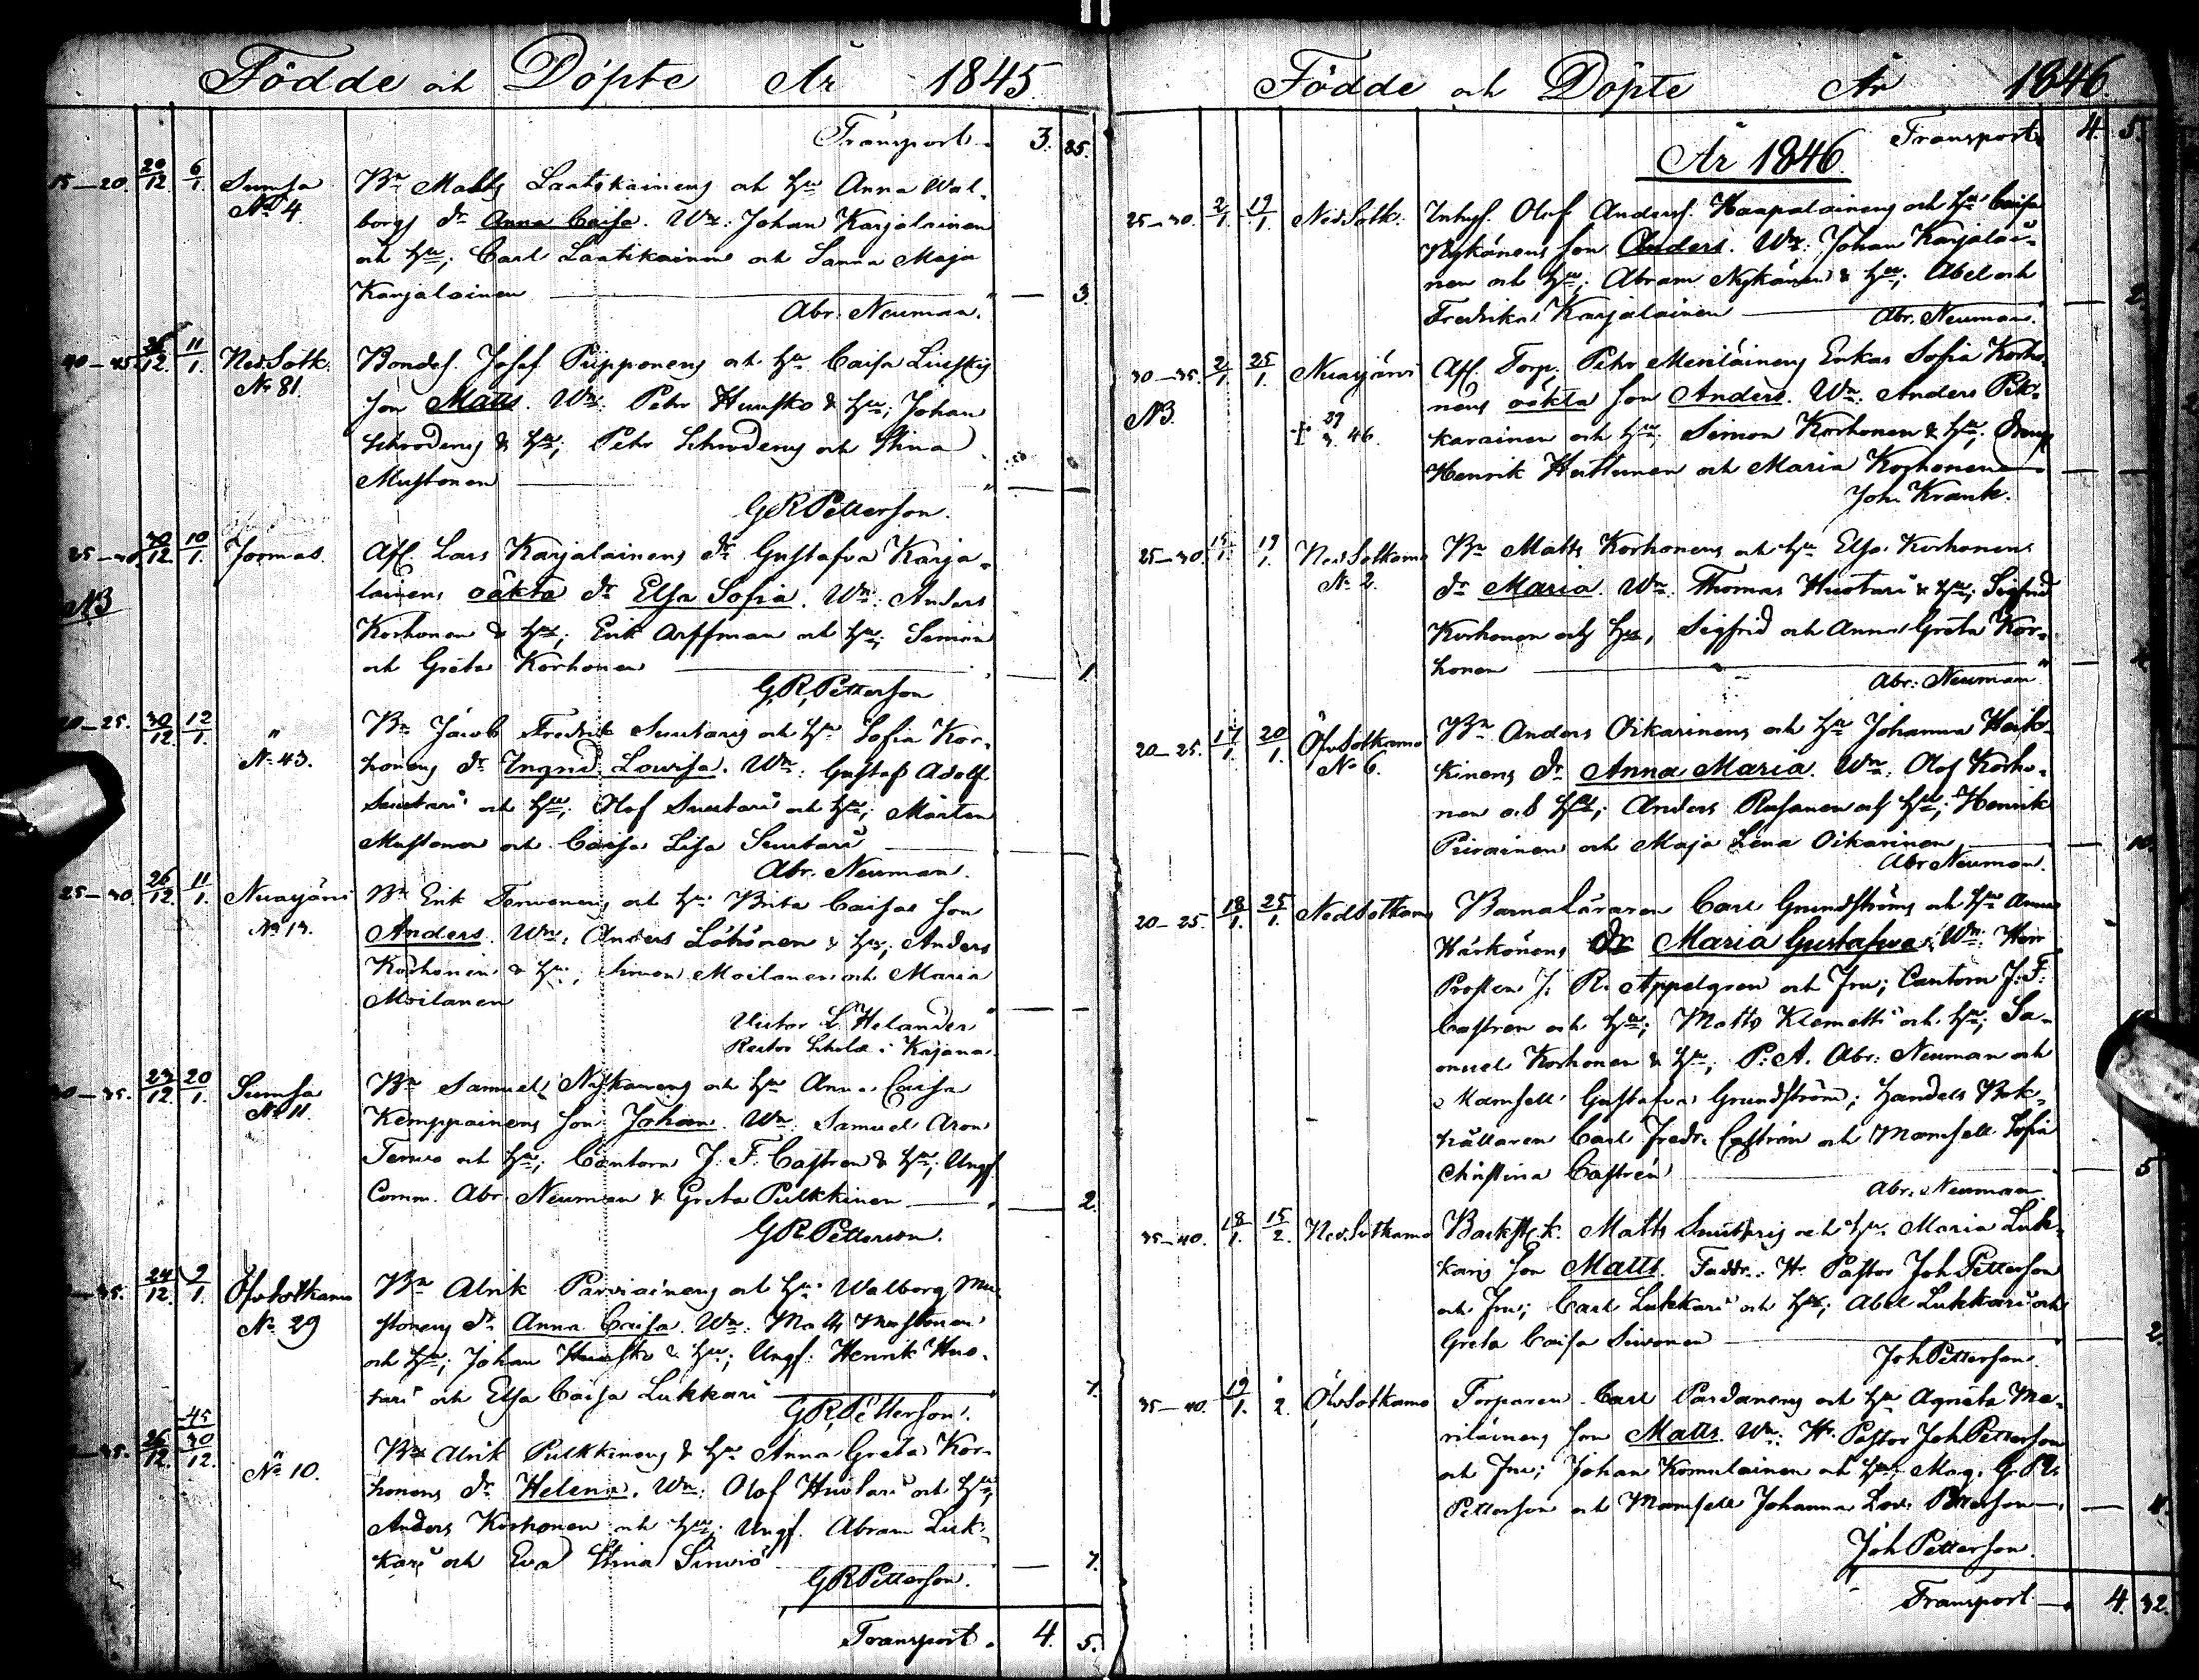 Födde och Döpte År 1845.
Transport. 3. 25.
15–20. 20/12. 6/1. Sumsa Bn Matts Laatikainens och Hu Anna Wal-
No 4. borgs dr Anna Caisa. Wn: Johan Karjalainen
och Hu; Carl Laatikainen och Sanna Maja
Karjalainen — 3.
Abr. Neuman.
40–45. 12. 11/1. Ned.Sotk. Bondes. Josef Piipponens och Hu Caisa
No 81. son Matts. Wn: Petr Huusko & Hu; Johan
Schroderus & Hu; Petr Schroderus och Stina
Mustonen —
G R Petterson.
25– 30/12. 10/1. Jormas. Afl. Lars Karjalainens dr Gustafva Karja-
NB lainens oäkta dr Elsa Sofia. Wn: Anders
Korhonen & Hu; Erik Arffman och Hu; Simon
och Greta Korhonen — 1.
G. R. Petterson
–25. 30/12. 12/1. " Bn Jacob Fredrik Suutaris och Hu Sofia Kor-
No 43. honens dr Ingrid Lowisa. Wn: Gustaf Adolf
Suutari och Hu; Olof Suutari och Hu; Mårten
Mustonen och Caisa Lisa Suutari —
Abr. Neuman.
25–30. 26/12. 11/1. Nuasjärvi Bn Erik Terwonens och Hu Brita Caisas son
No 13. Anders. Wn: Anders Löhönen & Hu; Anders
Korhonen & Hu; Simon Moilanen och Maria
Moilanen —
Victor L. Helander
Rector Schola i Kajana.
30–35. 23/12. 20/1. Sumsa Bn Samuel Nykänens och Hu Anna Caisa
No 11. Kemppainens son Johan. Wn: Samuel Aron
Terwo och Hu; Cantorn J. F. Castren & Hu; Ungf.
Comm. Abr. Neuman & Greta Pulkkinen — 2.
G R Petterson.
–35. 24/12. 9/1. Öfv.Sotkamo Bn Alrik Parviainens och Hu Walborg Mu-
No 29 stonens dr Anna Caisa. Wn: Matts Mustonen
och Hu; Johan Huusko & Hu; Ungf. Henrik Huo-
tari och Elsa Caisa Lukkari — 7.
G R Petterson.
–35. 26/12. 45 30/12. " Bn Alrik Pulkkinens & Hu Anna Greta Kor-
No 10. honens dr Helena. Wn: Olof Huotari och Hu;
Anders Korhonen och Hu; Ungf. Abram Luk-
kari och Eva Stina Sirviö — 7.
G R Petterson.
Transport. 4. 5.
Födde och Döpte År 1846.
Transport 4. 5.
År 1846.
25–30. 2/1. 19/1. Ned.Sotk. Inhys. Olof Anders. Haapalainens och Hu Caisa
Nykänens son Anders. Wn: Johan Karjalai-
nen och Hu; Abram Nykänen & Hu; Abel och
Fredrika Karjalainen — 2.
Abr. Neuman.
30–35. 2/1. 25/1. Nuasjärvi Afl. Torp. Petr Meriläinens Enkas Sofia Korho-
NB. nens oäkta son Anders. Wn: Anders Pik-
† 29/3. 46. karainen och Hu; Simon Korhonen & Hu; Dreng
Henrik Huttunen och Maria Korhonen —
Joh. Krank.
25–30. 19/1. Ned.Sotkamo Bn Matts Korhonens och Hu Elsa Korhonens
No 2. dr Maria. Wn: Thomas Huotari & Hu; Sigfrid
Korhonen och Hu; Sigfrid och Anna Greta Kor-
honen —
Abr. Neuman
20–25. 17/1. 20/1. Öfv.Sotkamo Bn Anders Oikarinens och Hu Johanna Heik-
No 6. kinens dr Anna Maria. Wn: Olof Korho-
nen och Hu; Anders Rusanen och Hu; Henrik
Piirainen och Maja Lena Oikarinen —
Abr Neuman.
20–25. 18/1. 25/1. Ned.Sotkamo Barnaläraren Carl Grundströms och Hu Anna
Härkönens dr Maria Gustafva. Wn: Herr
Prosten J. R. Appelgren och Fru; Cantorn J. F.
Castren och Hu; Matts Klemetti och Hu; Sa-
muel Korhonen & Hu; P. A. Abr. Neuman och
Mamsell Gustafva Grundström; Handels Bok-
hållaren Carl Fredr. Castrén och Mamsell Sofia
Christina Castrén — 5
Abr. Neuman.
35–40. 18/1. 15/2. Ned.Sotkamo Backst.k. Matts Suutaris och Hu Maria Luk-
karis son Matts. Faddr: Hr Pastor Joh Petterson
och Fru; Carl Lukkari och Hu; Abel Lukkari och
Greta Caisa Sivonen — 2.
Joh Petterson.
35–40. 19/1. 2. Öfv.Sotkamo Torparen Carl Pardanens och Hu Agneta Me-
riläinens son Matts. Wn: Hr Pastor Joh Petterson
och Fru; Johan Komulainen och Hu; Mag. G. R.
Petterson och Mamsell Johanna Lov. Petterson — 4.
Joh Petterson.
Transport — 4. 32.